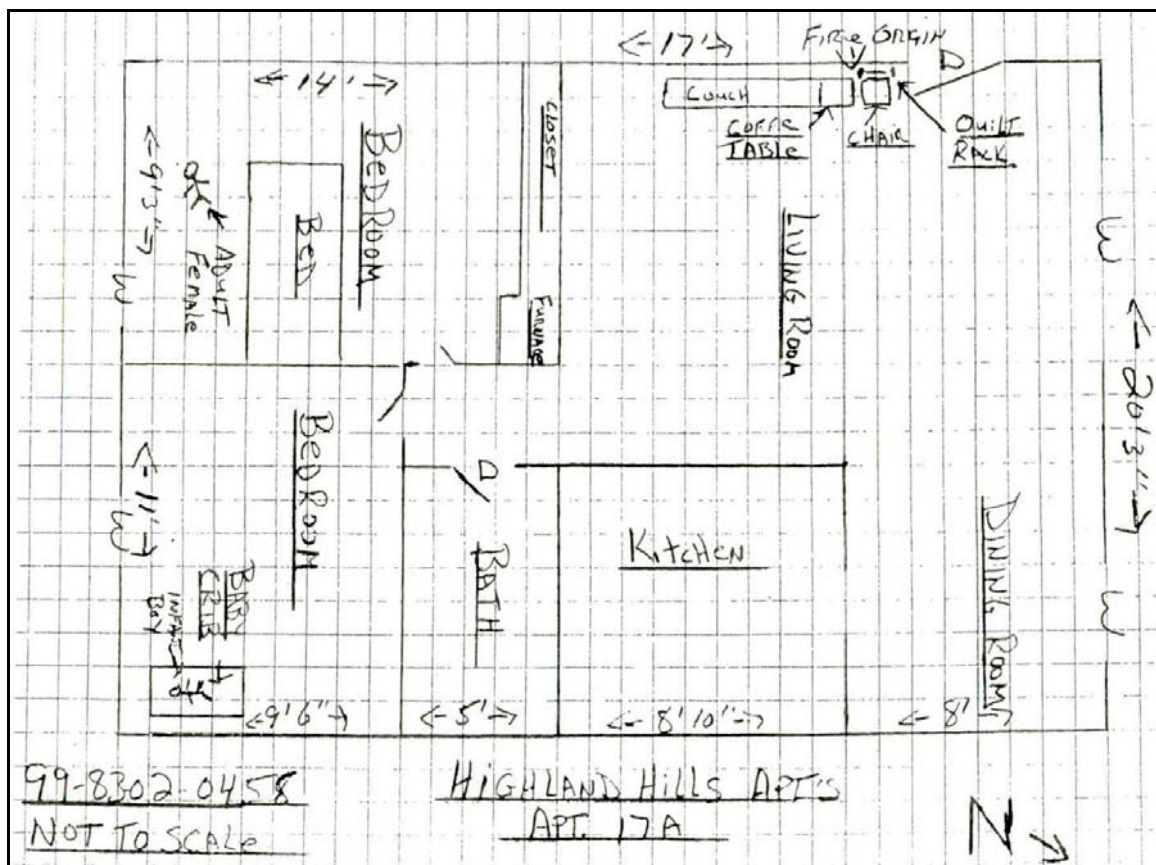 <-17'->
FIRE ORIGIN
D
<-14'->
COUCH
CLOSET
COFFE
TABLE
CHAIR
QUILT
RACK
<-9'3"->
BEDROOM
BED
ADULT
FEMALE
W
LIVING ROOM
W
FURNACE
<-20'3"->
BEDROOM
<-11'->
W
D
BATH
KITCHEN
DINING ROOM
W
BABY
CRIB
INFANT
BOY
<-9'6"->
<-5'->
<-8'10"->
<-8'->
99-8302-0458
NOT TO SCALE
HIGHLAND HILLS APT'S
APT. 17A
N